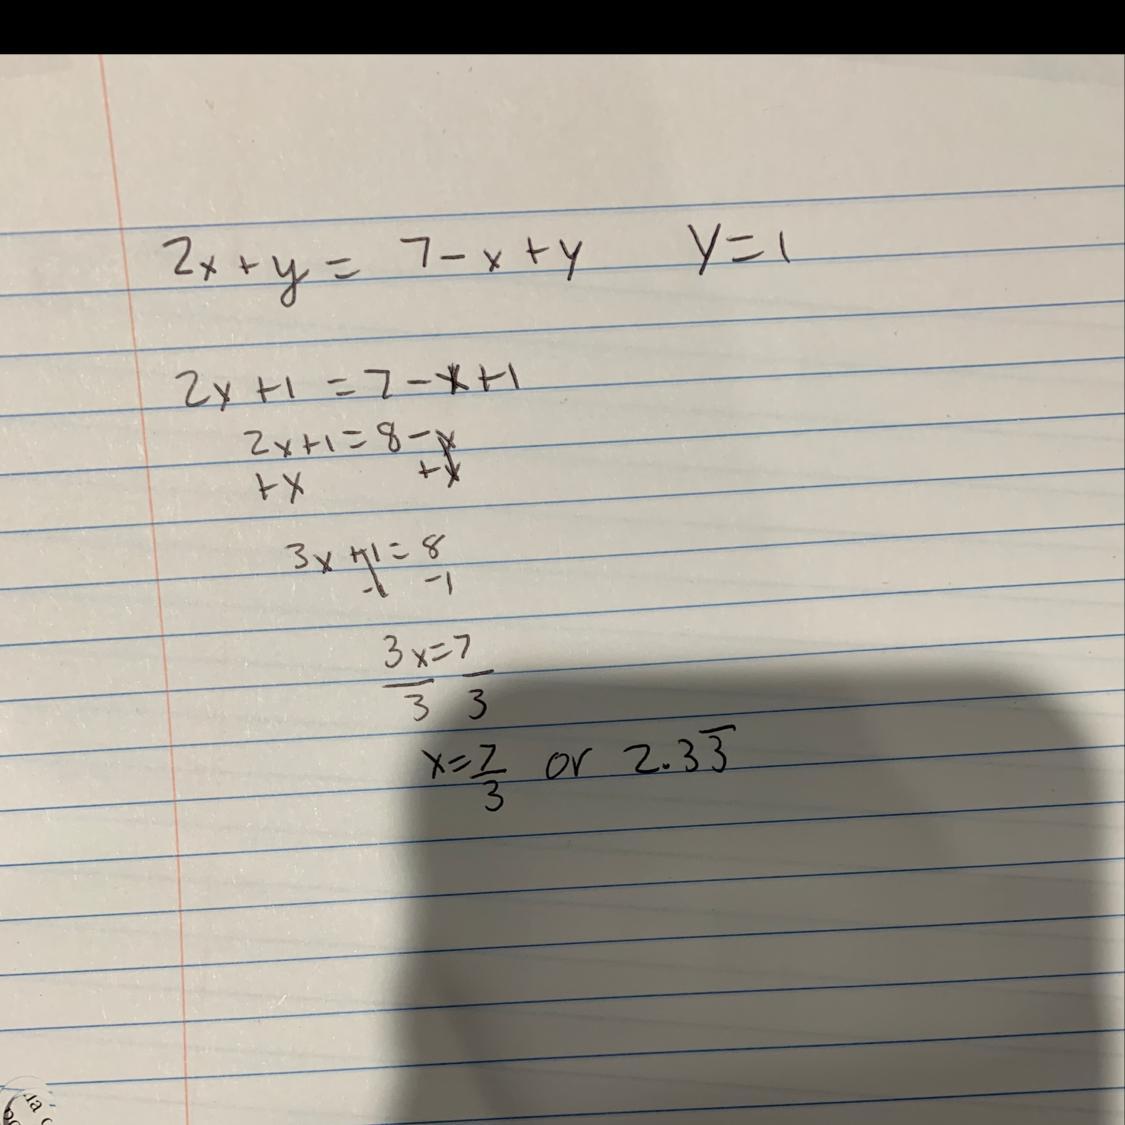 2x + y = 7 - x + y y = 1
2x + 1 = 7 - x + 1
2x + 1 = 8 - x
+x +x
3x + 1 = 8
-1 -1
3x = 7
3 3
x = 7/3 or 2.33̅